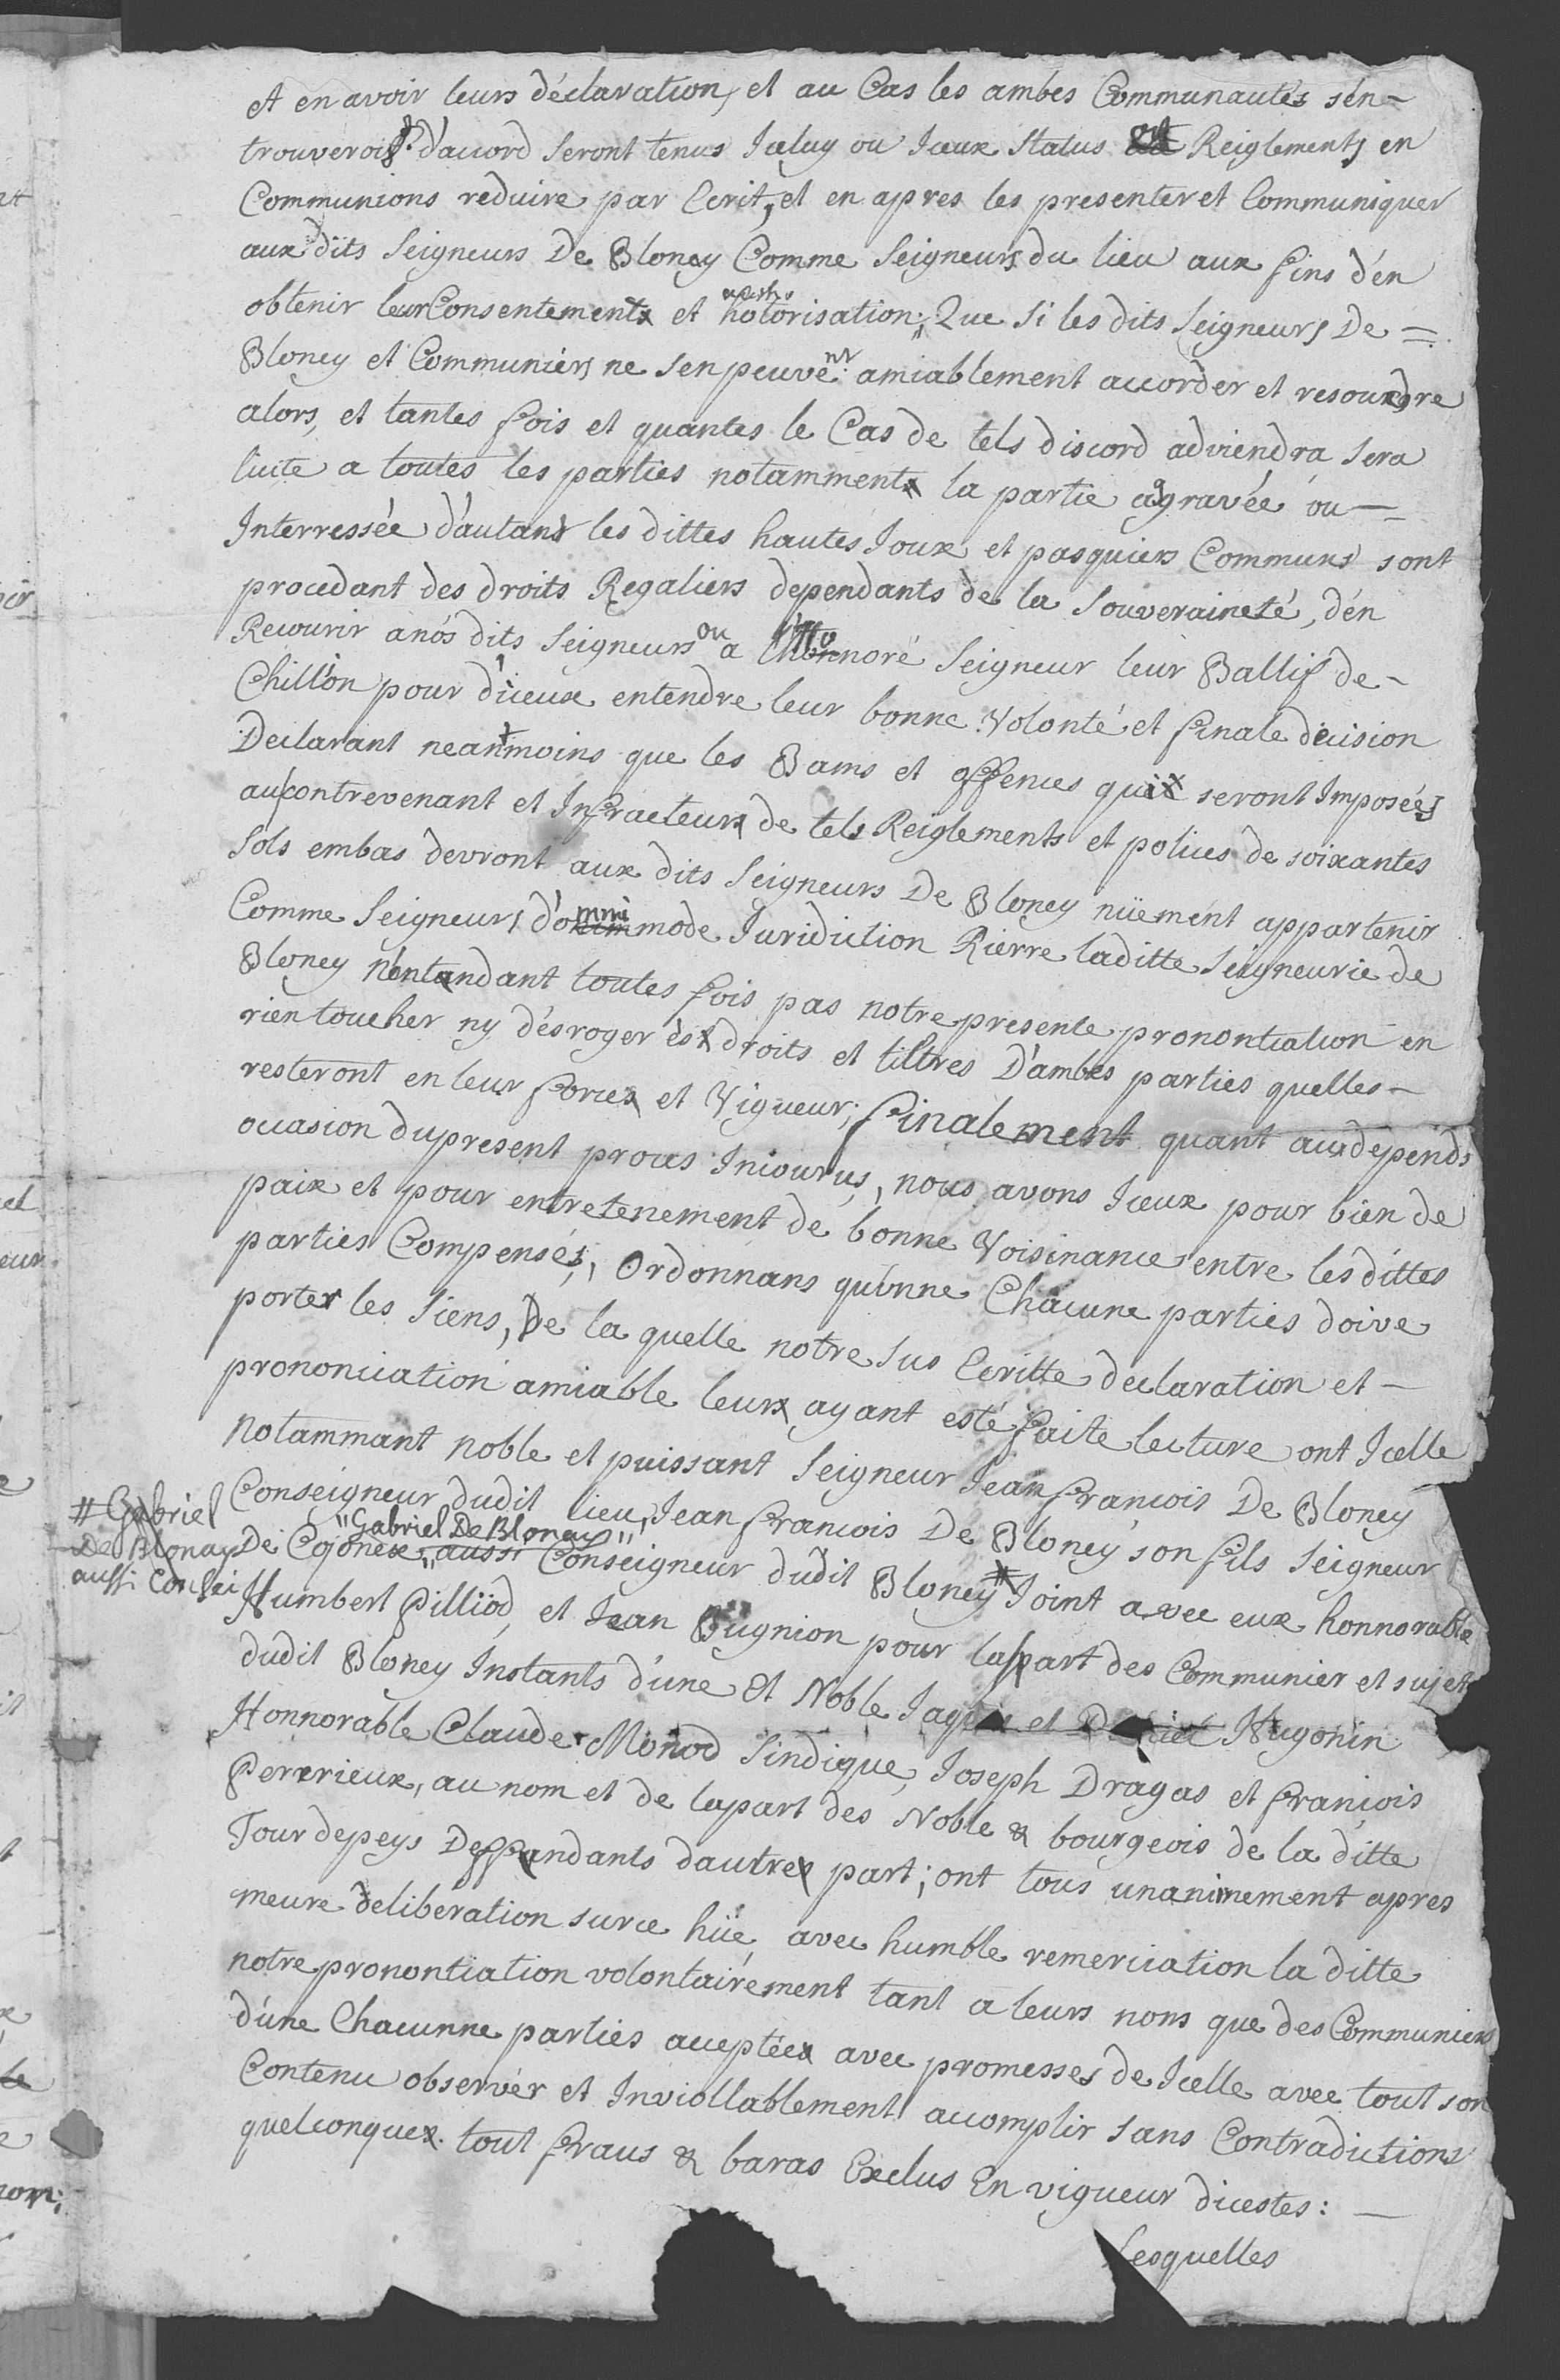 et en avoir leurs déclaration, et au Cas les ambes Communautés s'en-
trouveroit d'accord seront tenus Iceluy ou Iceux status et Reiglements en
Communions reduire par Ecrit, et en apres les presenter et Communiquer
aux dits Seigneurs De Bloney Comme Seigneurs du lieu aux fins d'en
obtenir leur Consentement et hotorisation; Que si les dits Seigneurs De =
Bloney et Communiers ne s'en peuvent amiablement accorder et resoudre
alors, et tantes fois et quantes le Cas de tels discord adviendra sera
licite a toutes les parties notamment la partie agravée ou —
Interressée d'autant les dittes hautes Joux et pasquiers Communs sont
procedant des droits Regaliers dependants de la Souveraineté, d'en
Recourir a nos dits Seigneurs ou a l'honnoré Seigneur leur Ballif de -
Chillon pour d'iceux entendre leur bonne Volonté et finale décision
Declarant neantmoins que les Bams et offences qui seront Imposées
au contrevenant et Infracteurs de tels Reiglements et polices de soixantes
sols embas devront aux dits Seigneurs De Bloney nüement appartenir
Comme Seigneurs d'omnimode Juridiction Rierre laditte Seigneurie de
Bloney N'entandant toutes fois pas notre presente prononciation en
rien toucher ny désroger ès droits et tiltres D'ambes parties quelles —
resteront en leur forces et Vigueur; finalement quant aux depends
occasion du present proces Incourus, nous avons Iceux pour bien de
paix et pour entretenement de bonne Voisinance entre les dittes
parties Compensés, Ordonnans qu'unne Chacune parties doive
porter les siens, De la quelle notre sus Ecritte declaration et —
prononciation amiable leurs ayant esté faite lecture ont Icelle
notammant noble et puissant Seigneur Jean francois De Bloney
Conseigneur dudit lieu, Jean francois De Bloney son fils Seigneur
"Gabriel De Blonay"
# Gabriel
De Blonay
aussi Consei
De Cojonex, aussi Conseigneur dudit Bloney # Joint avec eux honnorable
Humbert Pilliod, et Jean Bugnion pour la part des Communier et sujet
dudit Bloney Instants d'une Et Noble et Hugonin
Honnorable Claude Monod Sindique, Joseph Dragas et francois
Perrrieux, au nom et de la part des Noble & bourgeois de la ditte
Tour de peys Deffandants d'autre part; ont tous unanimement apres
meure deliberation sur ce hüe avec humble remerciation la ditte
notre prononciation volontairement tant a leurs noms que des Communiers
d'une Chacunne parties acceptée avec promesses de Icelle avec tout son
Contenu observer et Inviollablement accomplir sans Contradictions
quelconques. tout fraus & baras Exclus En vigueur dicestes: —
Lesquelles